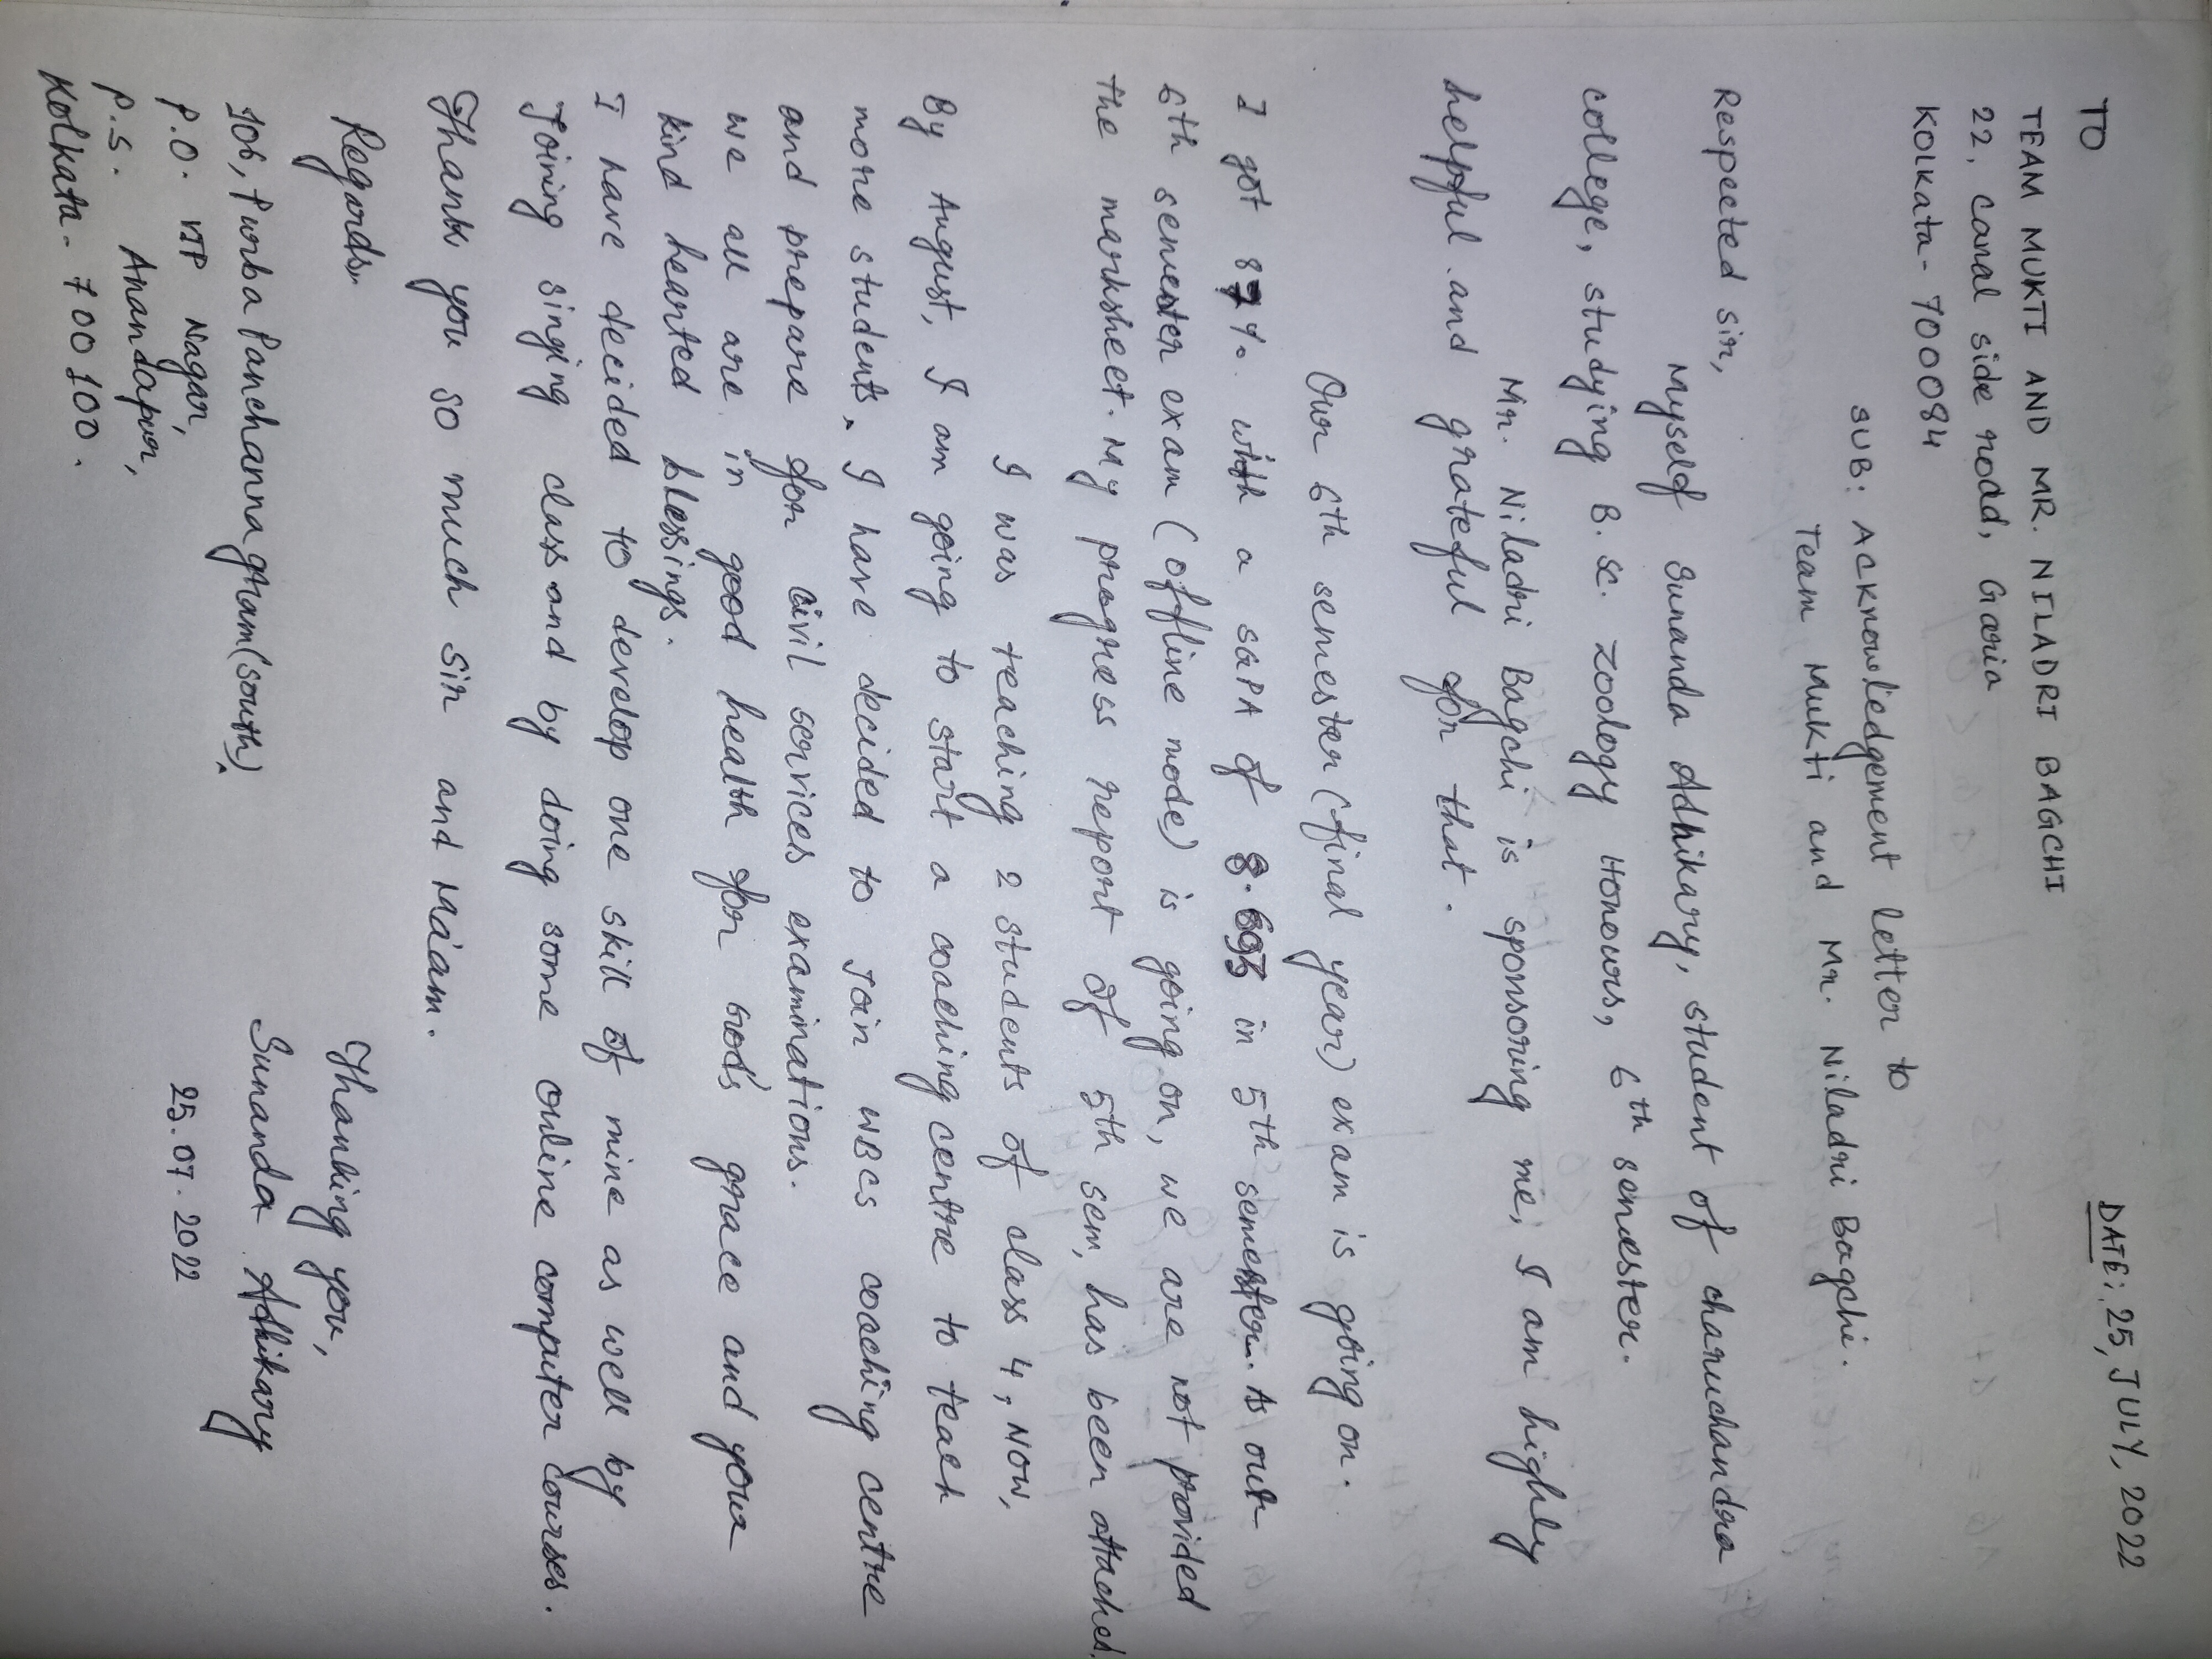 TO
DATE: 25, JULY, 2022
TEAM MUKTI AND MR. NILADRI BAGCHI
22, canal side road, Garia
Kolkata - 700084
SUB: Acknowledgement letter to
Team Mukti and Mr. Niladri Bagchi.
Respected sir,
Myself Sunanda Adhikary, student of charuchandra
college, studying B.Sc. Zoology Honours, 6th semester.
Mr. Niladri Bagchi is sponsoring me, I am highly
helpful and grateful for that.
Our 6th semester (final year) exam is going on.
I got 87%. with a SGPA of 8. in 5th semester. As our
6th semester exam (offline mode) is going on, we are not provided
the marksheet. My progress report of 5th sem, has been attached.
I was teaching 2 students of class 4, Now,
By August, I am going to start a coaching centre to teach
more students. I have decided to Join WBCS coaching centre
and prepare for civil services examinations.
we all are in good health for God's grace and your
kind hearted blessings.
I have decided to develop one skill of mine as well by
Joining singing class and by doing some online computer courses.
Thank you so much sir and Ma'am.
Regards,
Thanking you,
106, Purba Panchannagram (south),
Sunanda Adhikary
P.O. VIP Nagar,
25.07.2022
P.S. Anandapur,
Kolkata - 700100.